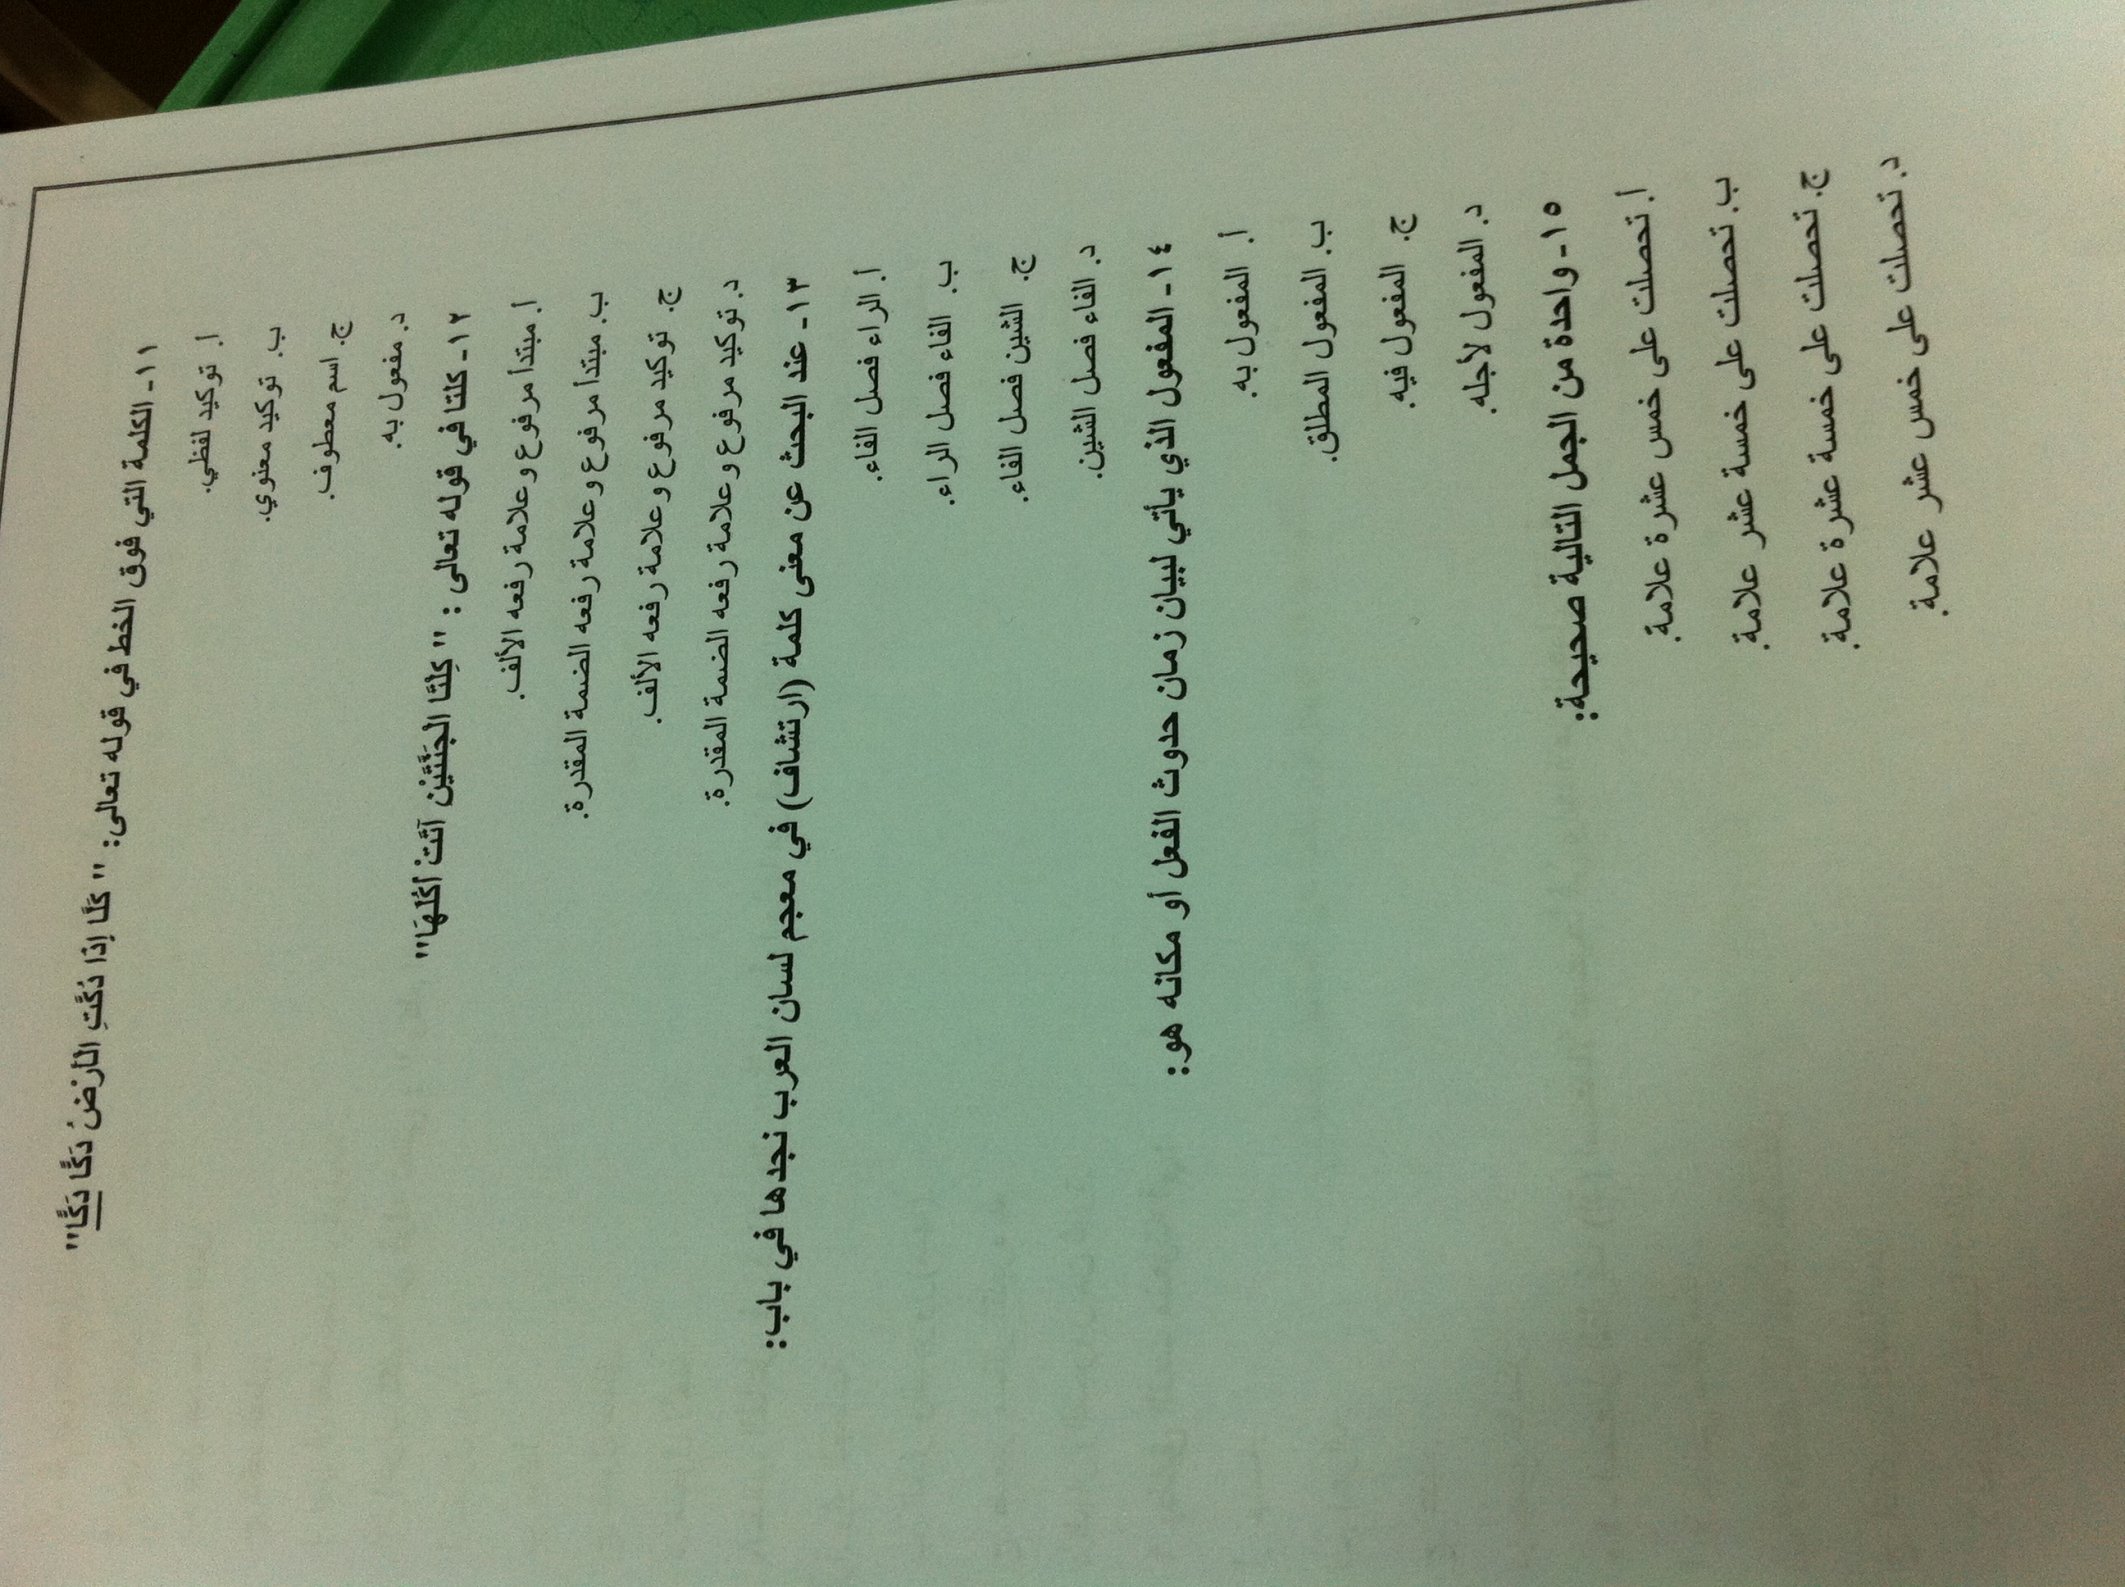 ١١- الكلمة التي فوق الخط في قوله تعالى: " كَلَّا إِذَا دُكَّتِ الْأَرْضُ دَكًّا دَكًّا"
أ. توكيد لفظي.
ب. توكيد معنوي.
ج. اسم معطوف.
د. مفعول به.
١٢- كلتا في قوله تعالى : " كِلْتَا الْجَنَّتَيْنِ آتَتْ أُكُلَهَا"
أ. مبتدأ مرفوع وعلامة رفعه الألف.
ب. مبتدأ مرفوع وعلامة رفعه الضمة المقدرة.
ج. توكيد مرفوع وعلامة رفعه الألف.
د. توكيد مرفوع وعلامة رفعه الضمة المقدرة.
١٣- عند البحث عن معنى كلمة (ارتشاف) في معجم لسان العرب نجدها في باب:
أ. الراء فصل الفاء.
ب. الفاء فصل الراء.
ج. الشين فصل الفاء.
د. الفاء فصل الشين.
١٤- المفعول الذي يأتي لبيان زمان حدوث الفعل أو مكانه هو:
أ. المفعول به.
ب. المفعول المطلق.
ج. المفعول فيه.
د. المفعول لأجله.
١٥- واحدة من الجمل التالية صحيحة:
أ. تحصلت على خمس عشرة علامة.
ب. تحصلت على خمسة عشر علامة.
ج. تحصلت على خمسة عشرة علامة.
د. تحصلت على خمس عشر علامة.